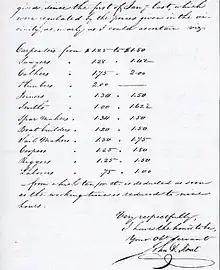 given since the first of Jan'y last, which
were regulated by the prices given in the vi-
cinity, as nearly as I could ascertain viz.
Carpenters from $1.25 to $1.50
Sawyers " 1.28 " 1.42
Caulkers " 1.75 " 2.00
Plumbers " 2.00
Joiners " 1.34 " 1.50
Smiths " 1.00 " 1.62½
Spar Makers " 1.34 " 1.50
Boat builders " 1.34 " 1.50
Sail Makers " 1.50 " 1.75
Coopers " 1.25 " 1.50
Riggers " 1.25 " 1.50
Laborers " 75 " 1.00
from which ten pr ct is deducted as soon
as the working time is reduced to nine
hours.
Very respectfully
I have the honor to be,
Your Obt Servant